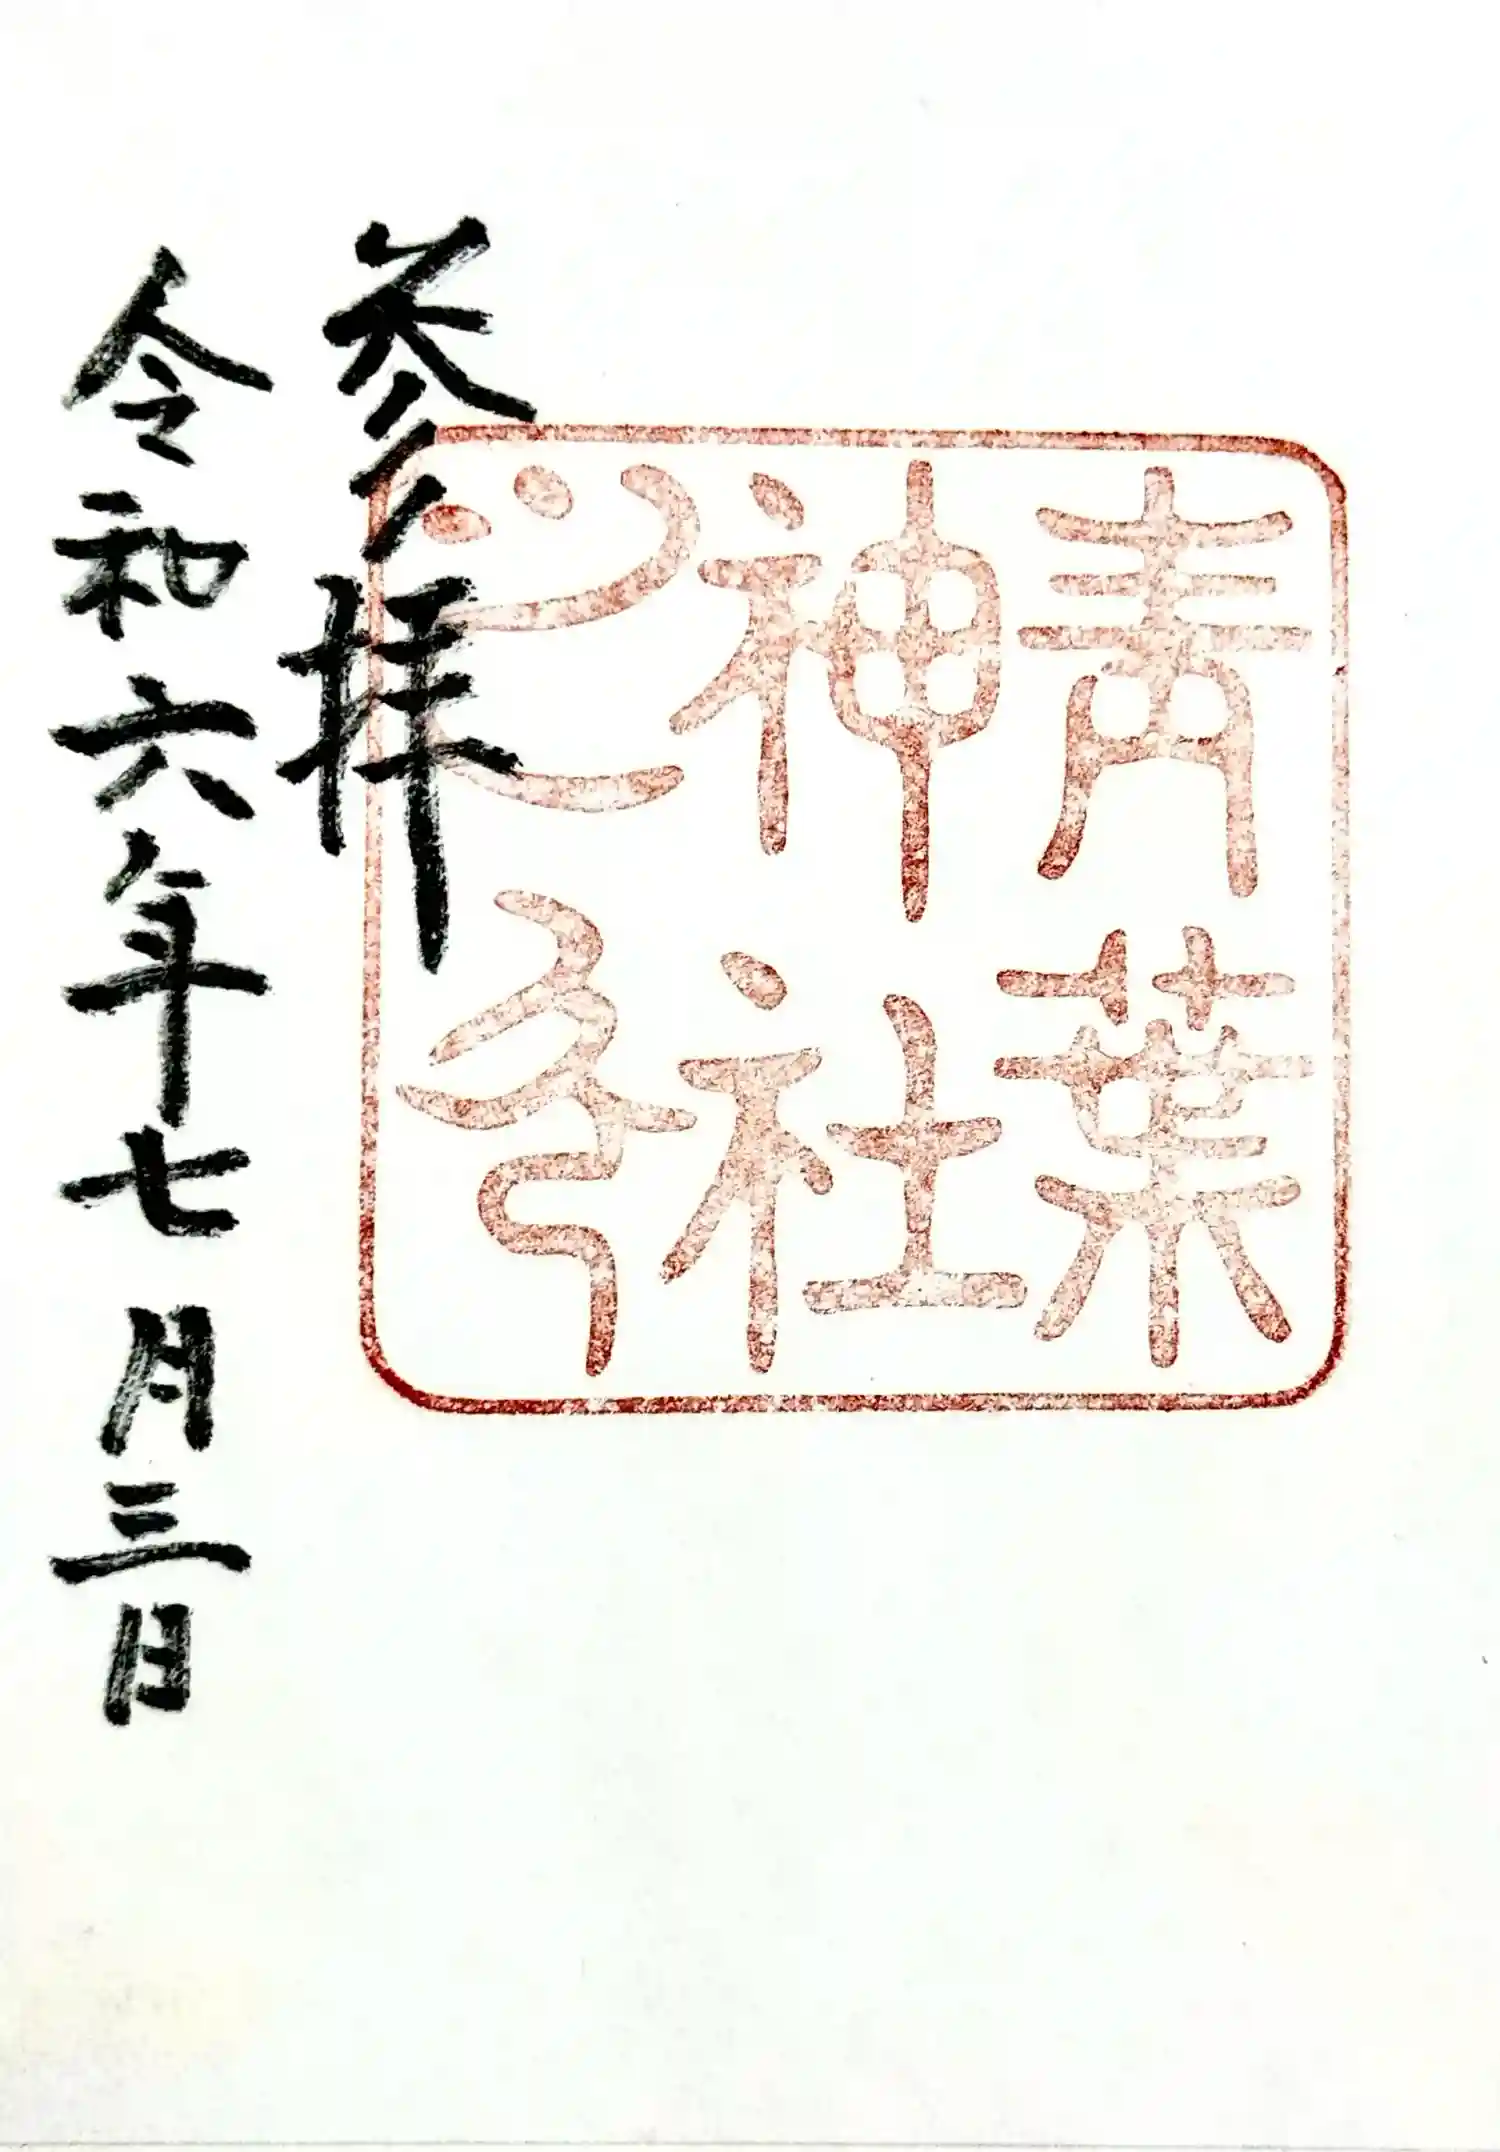 青葉
神社
参拝
令和六年七月三日